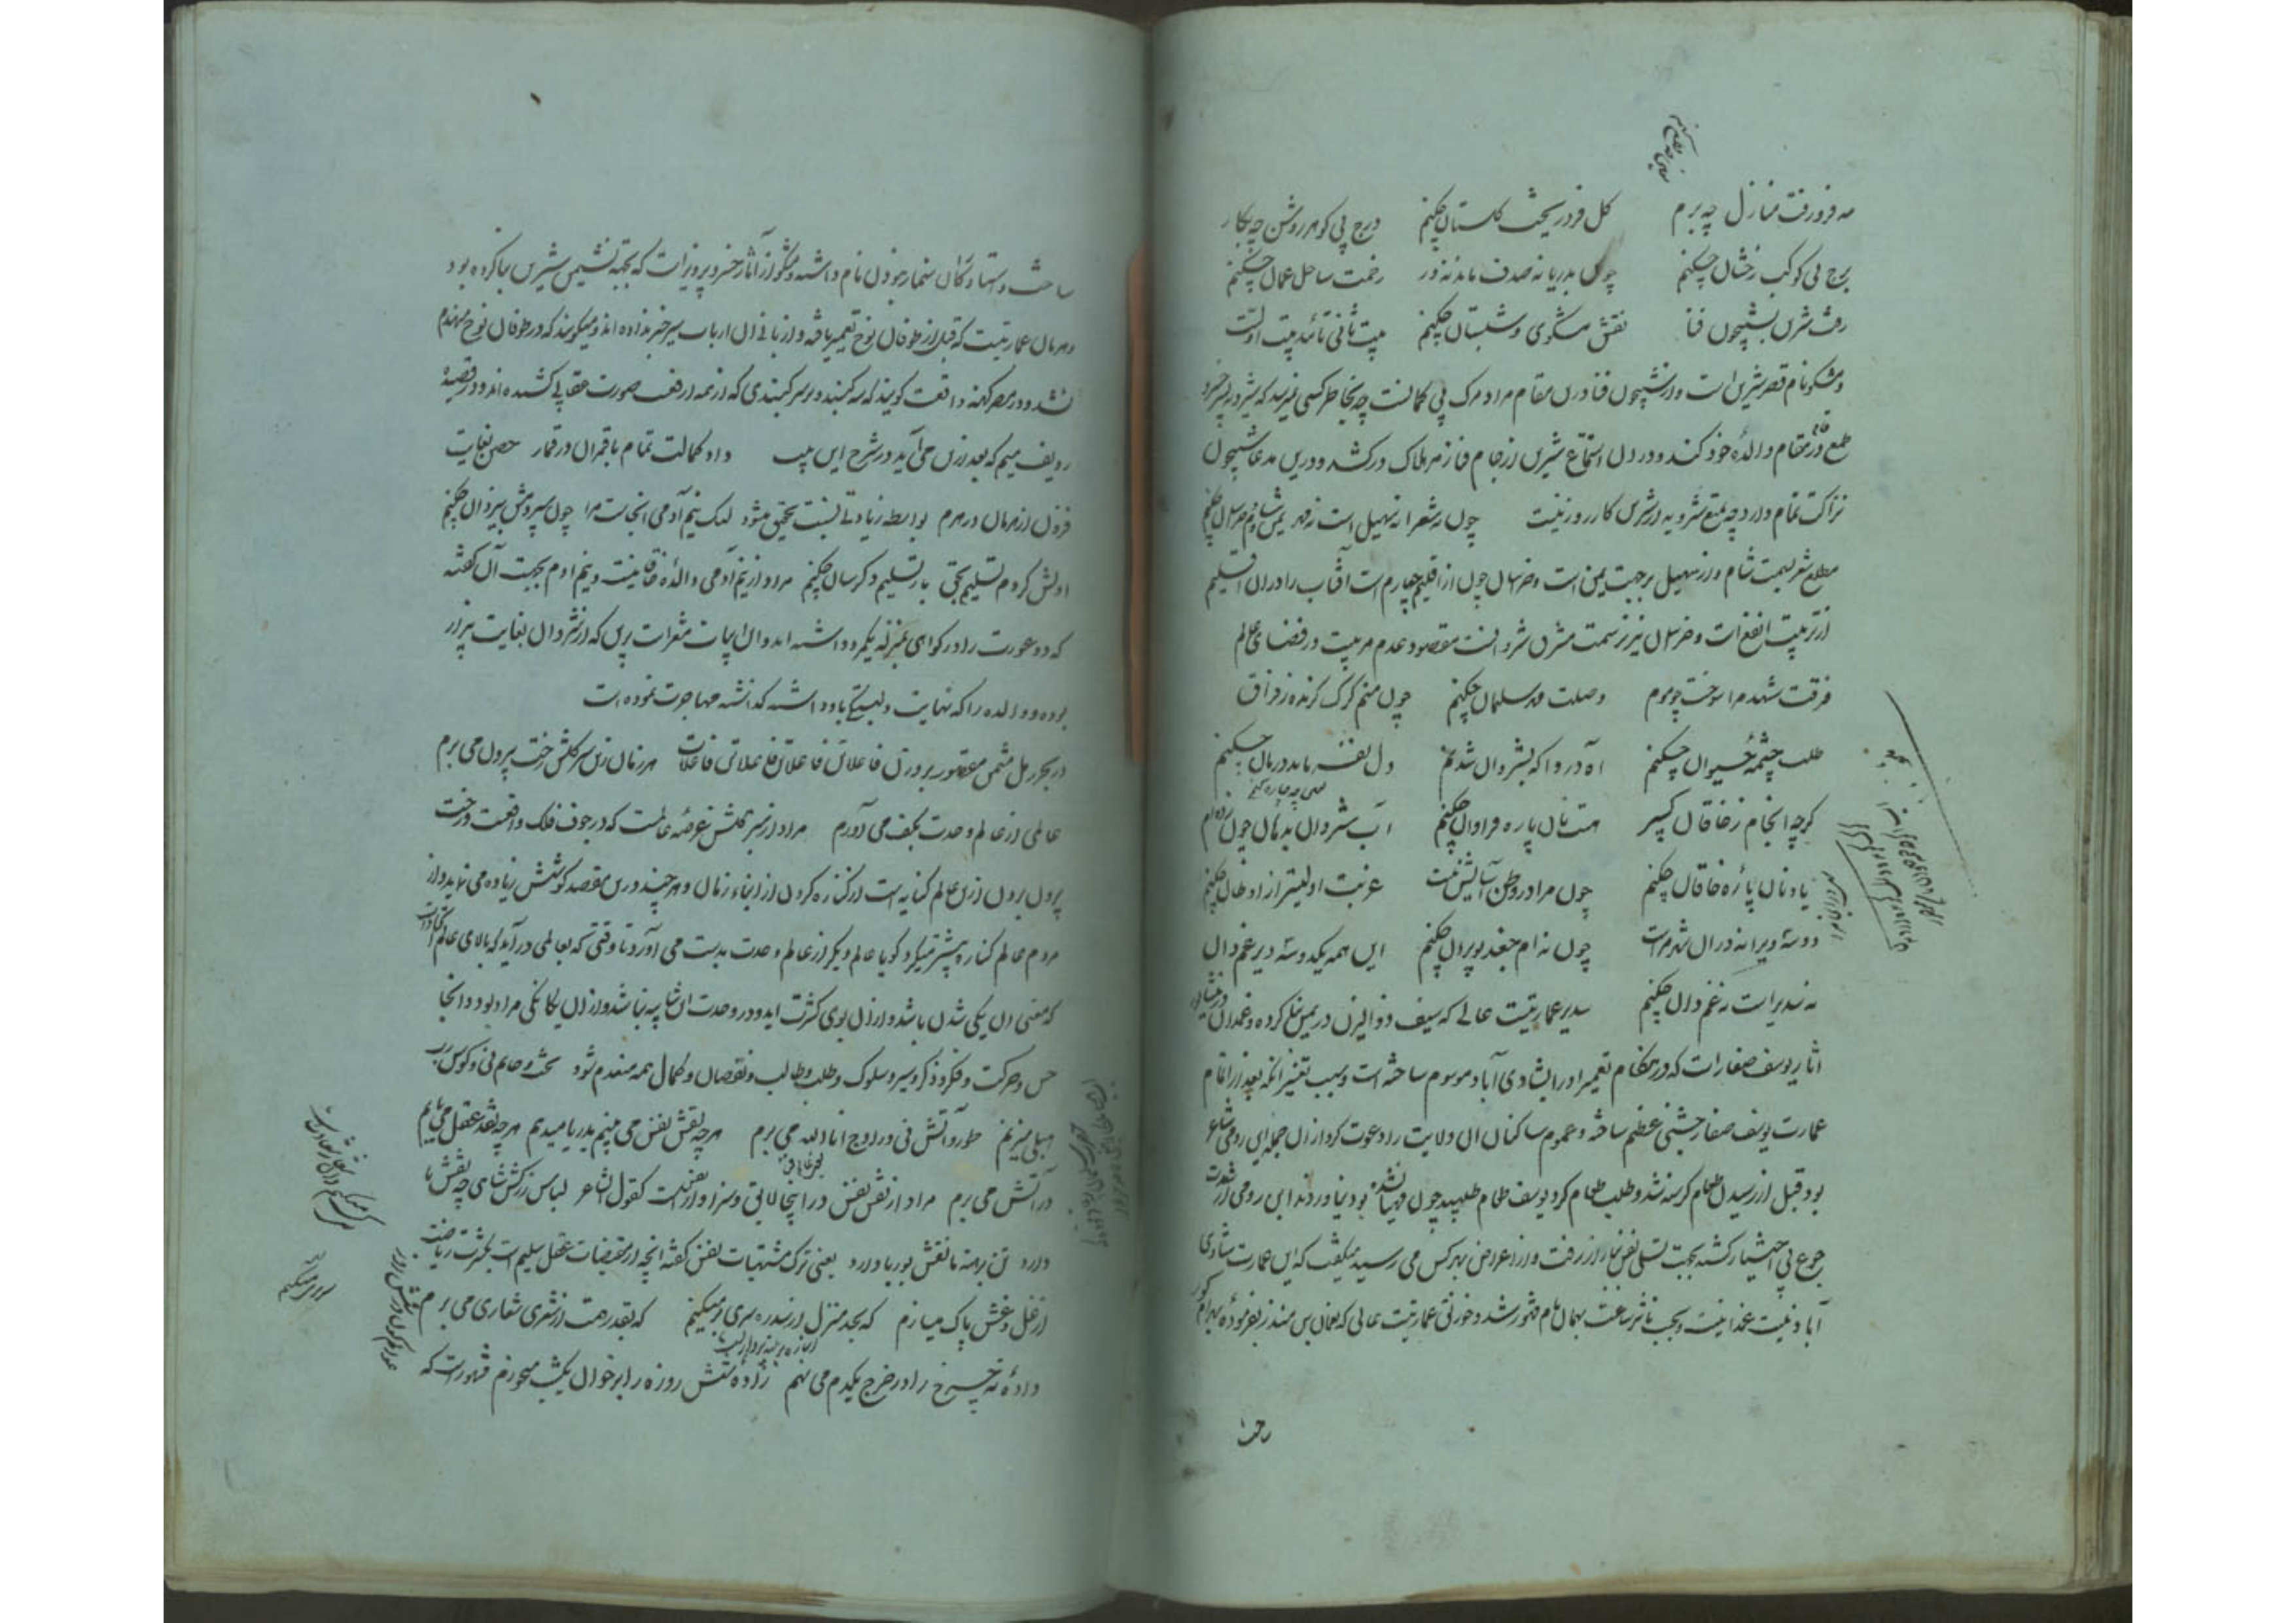 مه فرو رفت منازل چه برم گل فرو ریخت گلستان چکنم درج بی گوهر روشن چه بکار
برج بی کوکب رخشان چکنم چون بدریا نه صدف ماند نه در زحمت ساحل عمان چکنم
رفت شیرین بشبیخون فنا نقش مشکوی و شبستان چکنم بیت ثانی تائید بیت اولست
و مشکو نام قصر شیرین است و از شبیخون فنا درین مقام مراد مرگ بی کمالست چه بخاطر کسی نمیرسد که شیرویه پسر خسرو
طمع در مقام والده خود کند و در دل استماع شیرین از جام فنا زهر هلاک در کشد و درین مدعا شبیخون
نزاکت تمام دارد چه تمتع شیرویه از شیرین کار روز نیست چون نه شعرا نه سهیل است نه مهر یمن و شام و خراسان چکنم
مطلع شعر بسمت شام و از سهیل بر جهت یمن است و خراسان چون از اقلیم چهارم است آفتاب را در ان اقلیم
از تربیت انفع است و خراسان نیز از سمت مشرق شروانست مقصود عدم مربیست در فضای عالم
فرقت شهد مرا سوخت چو موم وصلت مهر سلیمان چکنم چون منم گرگ گزنده ز فراق
طلب چشمه حیوان چکنم آه دردا که بشروان شدنم دل نفرماید درمان چکنم
گرچه انجام ز خاقان کبیر هست نان پاره فراوان چکنم آب شروان بدهان چون زده ام
یاد نان پاره خاقان چکنم چون مرا در وطن آسایش نیست غربت اولیتر از اوطان چکنم
دوسته ویرانه در ان شهر مراست چون نه ام جغد بویران چکنم این همه یکدوسته دیر غم دان
نه سدیر است نه غمدان چکنم سدیر عمارتیست عالی که سیف ذو الیزن در یمن بنا کرده و غمدان در نیشابور
آثار یوسف صفار است که در هنگام تعمیر او را بشادی آباد موسوم ساخته است و سبب تغییر آنکه بعد از اتمام
عمارت یوسف صفار جشنی عظیم ساخته و عموم ساکنان ان ولایت را دعوت کرد از ان جمله ابی رومی شاعر
بود قبل از رسیدن طعام گرسنه شد و طلب طعام کرد یوسف طعام طلبید چون مهیا نشده بود نیاوردند ابی رومی از شدت
جوع بی اختیار گشته بجهت تسلی نفس بیاز از رفت و از اعراض بهر کس می رسید میگفت که این عمارت شادی
آباد نیست غمدانیست و بجهت تاثیر ساعت بهمان نام مشهور شد و خورنق عمارتیست عالی که نعمان بن منذر بفرموده بهرام گور
ساخته و استاد کان سنمار بودن نام داشته و مشکو از آثار خسرو پرویز است که بجهة نشیمن شیرین بنا کرده بود
و هرمان عمارتیست که قبل از طوفان نوح تعمیر یافته و از بانی ان ارباب سیر خبر نداده اند و میگویند که در طوفان نوح منهدم
نشد و در مصر کهنه واقعست گویند که سه گنبد و بر سر گنبدی که از همه ارفع صورت عقابی کشیده اند و در قصیده
ردیف میم که بعد ازین می آید در شرح این بیت داد کمالت تمام باقمران در قمار حصن بغایت
فزون از هرمان در هرم بواسطه زیادتی نسبت تحقیق میشود لیک نیم آدمی انجاست مرا چون سپردمش بیزدان چکنم
اولش کردم تسلیم بحق باز تسلیم دگرسان چکنم مراد از نیم آدمی والده خاقانیست و نیم ادم بجهت آن گفته
که دو عورت را در گواهی بمنزله یکمرد داشته اند و ان ابیات مشعر است برین که از شروان بغایت بیزار
بوده و والده را که نهایت دلبستگی با او داشته گذاشته مهاجرت نموده است
در بحر رمل مثمن مقصور بر وزن فاعلاتن فاعلاتن فاعلاتن فاعلات هر زمان زین سبز گلشن رخت بیرون می برم
عالمی از عالم وحدت بکف می آورم مراد از سبز گلشن عرصه عالمست که در جوف فلک واقعست و رخت
بیرون بردن ازین عالم کنایه است از کناره کردن از ابناء زمان و هر چند درین مقصد کوشش زیاده می نماید و از
مردم عالم کناره بیشتر میگیرد گویا عالم دیگر از عالم وحدت بدست می آورد تا وقتی که بعالمی در آید که بالای عالم اتحاد است
که معنی ان یکی شدن باشد و از ان بوی کثرت اید و در وحدت ان شایبه نباشد و از ان یگانگی مراد بود و انجا
حس و حرکت و فکر و ذکر و سیر و سلوک و طلب و طالب و نقصان و کمال همه منعدم شود تخت و خاتم نی و کوس رب
هبلی میزنم طور و آتش نی و در اوج انا الله می پرم هرچه نقش نفس می بینم بدریا میدهم هرچه نقد عقل می یابم
در آتش می برم مراد از نقش نفس در اینجا لایق و سزاوار نیست کقول الشاعر لباس زرکش شاهی چه نقش ها
دارد تن برهنه ما نقش بوریا دارد یعنی ترک مشتهیات نفس گفته انچه از مقتضیات عقل سلیم است بکثرت ریاضت
از غل و غش پاک میسازم گه بحد منزل از سدره سریر میکنم گه بقدر همت از شعری شعاری می برم
داده نه چرخ را در خرج یکدم می نهم زاده شش روزه را بر خوان یکشب میخورم مشهور است که